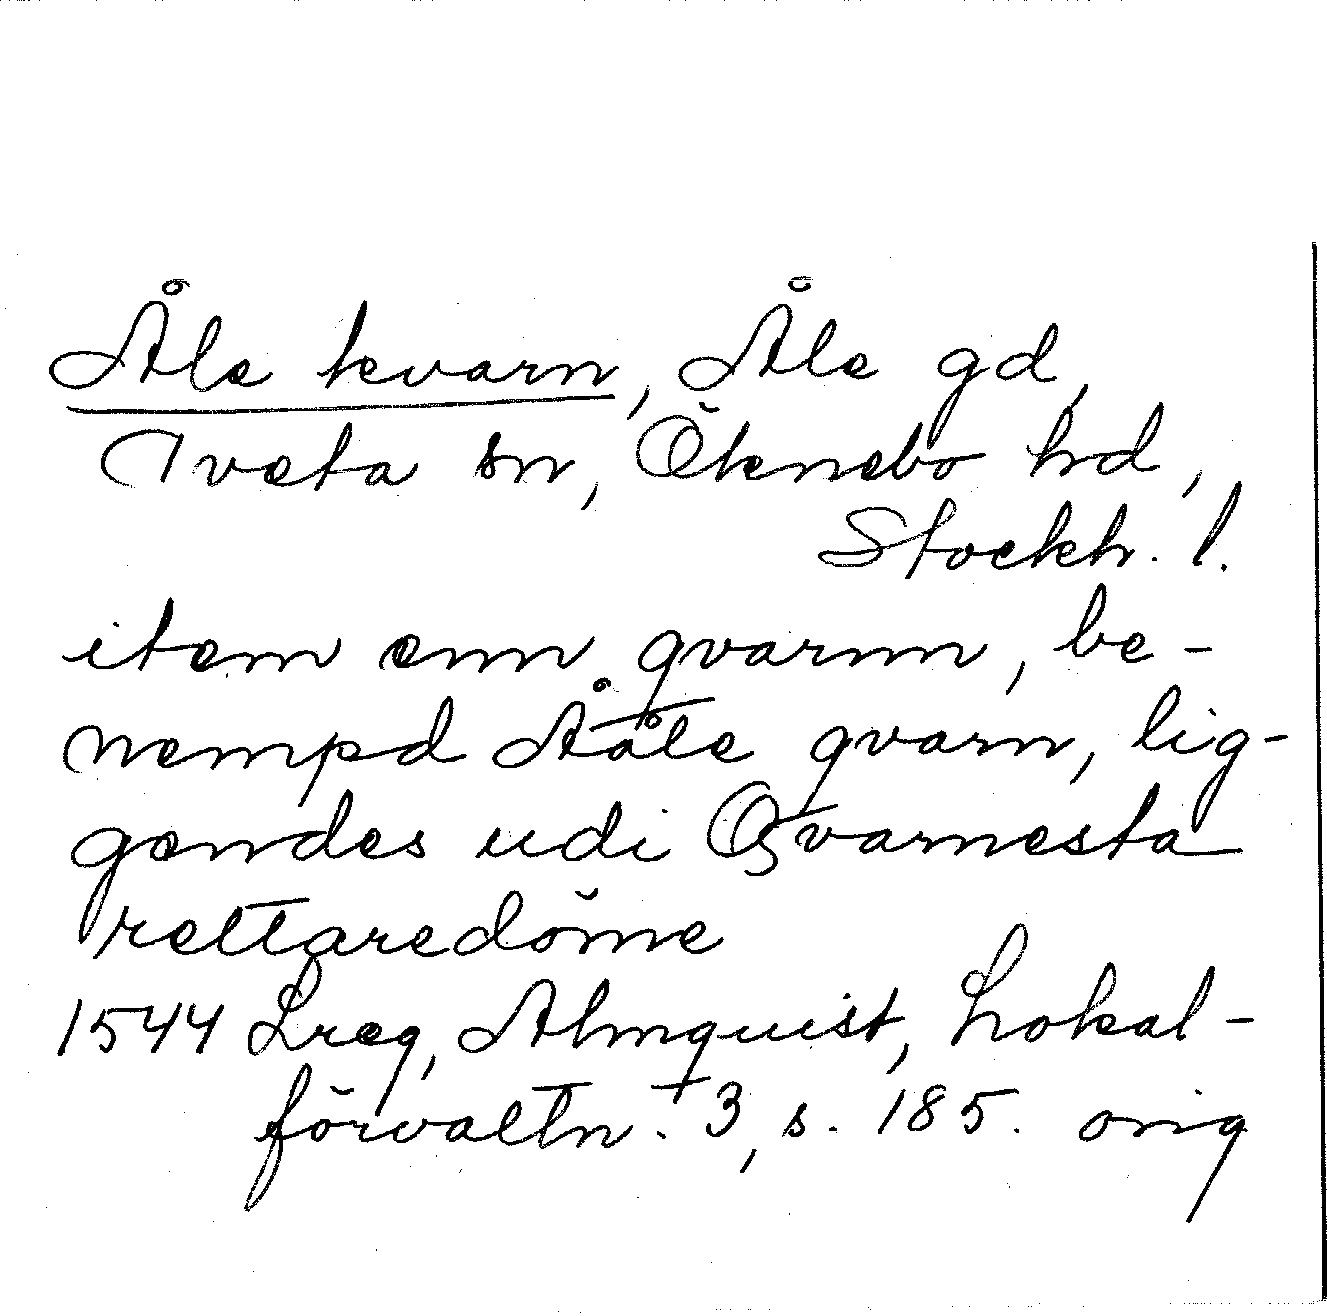 Åle kvarn, Åle gd,
Tveta sn, Öknebo hd,
Stockh. l.
item enn qvarnn, be-
nempd Ååle qvarn, lig-
gendes udi Qvarnesta
rettaredöme
1544 Lreg, Almquist, Lokal-
förvaltn. 3, s. 185. orig